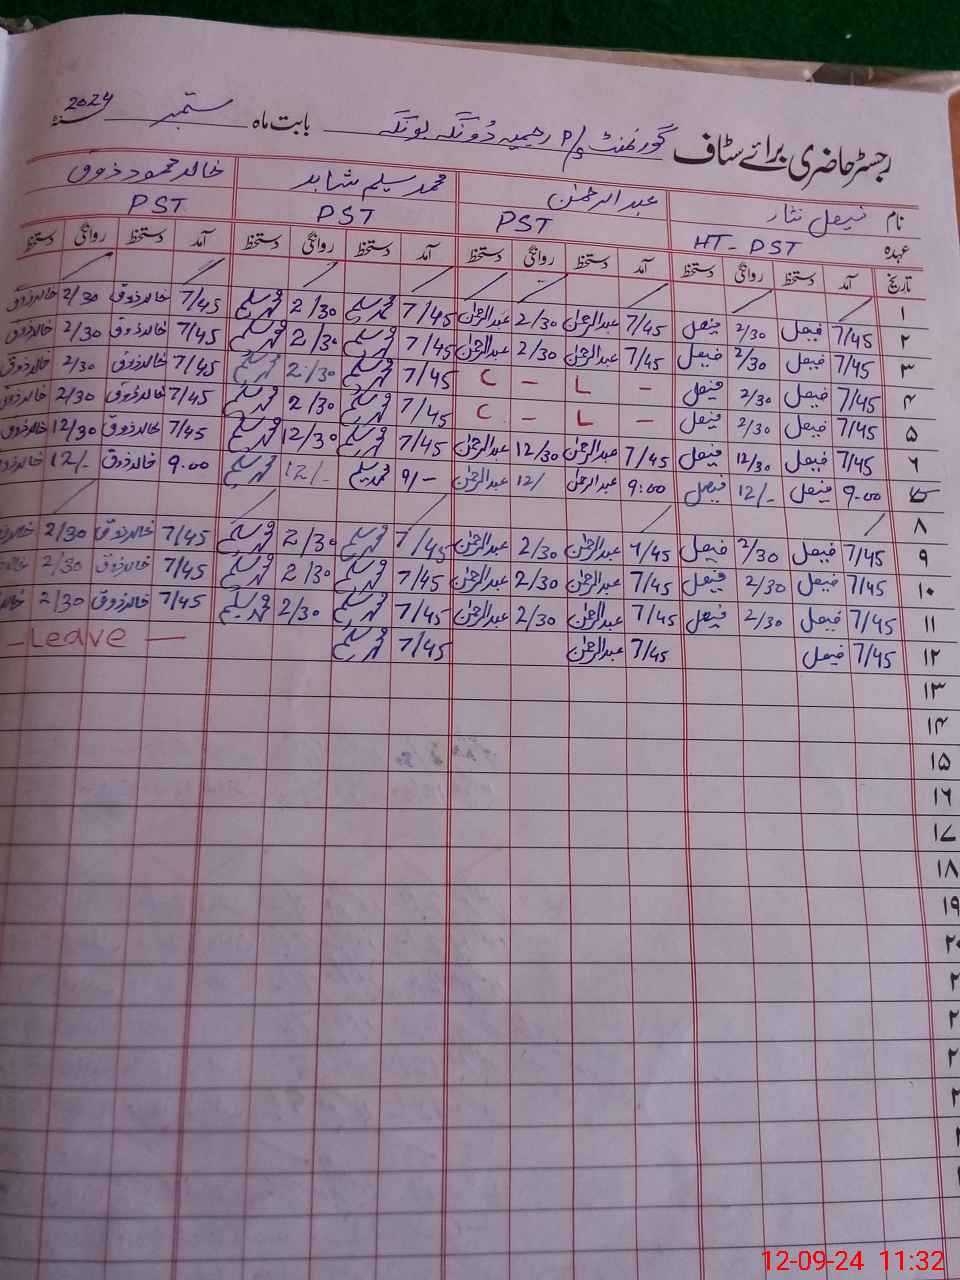 رجسٹر حاضری برائے سٹاف گورنمنٹ P/S رحیمیہ ڈونگہ بونگہ بابت ماہ ستمبر سنہ 2024
نام فیصل نثار عبدالرحمٰن محمد سلیم شاہد خالد محمود ذوق
عہدہ HT-PST PST PST PST
تاریخ آمد دستخط روانگی دستخط آمد دستخط روانگی دستخط آمد دستخط روانگی دستخط آمد دستخط روانگی دستخط
۱
۲ 7/45 فیصل 2/30 فیصل 7/45 عبدالرحمٰن 2/30 عبدالرحمٰن 7/45 محمد سلیم 2/30 محمد سلیم 7/45 خالد ذوق 2/30 خالد ذوق
۳ 7/45 فیصل 2/30 فیصل 7/45 عبدالرحمٰن 2/30 عبدالرحمٰن 7/45 محمد سلیم 2/30 محمد سلیم 7/45 خالد ذوق 2/30 خالد ذوق
۴ 7/45 فیصل 2/30 فیصل - L - C 7/45 محمد سلیم 2/30 محمد سلیم 7/45 خالد ذوق 2/30 خالد ذوق
۵ 7/45 فیصل 2/30 فیصل - L - C 7/45 محمد سلیم 2/30 محمد سلیم 7/45 خالد ذوق 2/30 خالد ذوق
۶ 7/45 فیصل 12/30 فیصل 7/45 عبدالرحمٰن 12/30 عبدالرحمٰن 7/45 محمد سلیم 12/30 محمد سلیم 7/45 خالد ذوق 12/30 خالد ذوق
9.00 فیصل 12/- فیصل 9:00 عبدالرحمٰن 12/ عبدالرحمٰن 9/- محمد سلیم 12/- محمد سلیم 9.00 خالد ذوق 12/- خالد ذوق
۸
۹ 7/45 فیصل 2/30 فیصل 7/45 عبدالرحمٰن 2/30 عبدالرحمٰن 7/45 محمد سلیم 2/30 محمد سلیم 7/45 خالد ذوق 2/30 خالد ذوق
۱۰ 7/45 فیصل 2/30 فیصل 7/45 عبدالرحمٰن 2/30 عبدالرحمٰن 7/45 محمد سلیم 2/30 محمد سلیم 7/45 خالد ذوق 2/30
۱۱ 7/45 فیصل 2/30 فیصل 7/45 عبدالرحمٰن 2/30 عبدالرحمٰن 7/45 محمد سلیم 2/30 محمد سلیم 7/45 خالد ذوق 2/30 خالد
۱۲ 7/45 فیصل 7/45 عبدالرحمٰن 7/45 محمد سلیم - Leave -
۱۳
۱۴
۱۵
۱۶
۱۷
۱۸
۱۹
۲۰
۲
۲
۲
۲
12-09-24 11:32